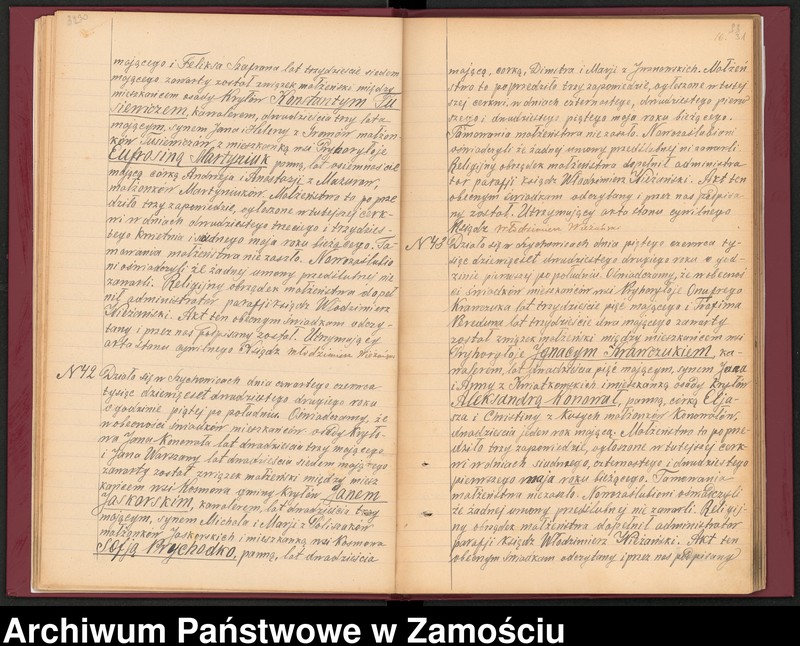 mającego i Feliksa Szafrana lat trzydzieście siedem
mającego zawarty został związek małżeński między
mieszkańcem osady Kryłów Konstantym
siewiczem, kawalerem, dwadzieścia trzy lata
mającym, synem Jana i Heleny z małżon-
ków Tusiewiczów, z mieszkanką wsi Prehoryłoje
Eufrosiną Martyniuk panną, lat osiemnaście
mającą córką Andreja i Anastazji z Mazurów,
małżonków Martyniuków. Małżeństwo to poprze-
dziło trzy zapowiedzie, ogłoszone w tutejszej cerk-
wi w dniach dwudziestego trzeciego i trzydzies-
tego kwietnia i siódmego maja roku bieżącego. Ta-
mowania małżeństwa nie zaszło. Nowozaślubie
ni oświadczyli że żadnej umowy przedślubnej nie
zawarli. Religijny obrządek małżeństwa dopeł
nił administrator parafji ksiądz Włodzimierz
Akt ten obecnym świadkom odczy-
tany i przez nas podpisany został. Utrzymujący
akta stanu cywilnego Ksiądz Włodzimierz
N 42 Działo się w dnia czwartego czerwca
tysiąc dziewięćset dwudziestego drugiego roku
o godzinie piątej po południu. Oświadczamy, że
w obecności świadków mieszkańców osady Kryło-
wa Jana Konowała lat dwadzieścia trzy mającego
i Jana Warszawy lat dwadzieścia siedem mającego
zawarty został związek małżeński między miesz
kańcem wsi Kosmowa gminy Kryłów Janem
Jaskorskim, kawalerem, lat dwadzieścia trzy
mającym, synem Michała i Marji z
małżonków Jaskorskich i mieszkanką wsi Kosmowa
Sofją Prychodko, panną, lat dwadzieścia
mającą, córką, Dimitra i Marji z Małżeń
stwo to poprzedziło trzy zapowiedzie, ogłoszone w tutej
szej cerkwi, w dniach czternastego, dwudziestego pierw
szego i dwudziestego piątego maja roku bieżącego.
Tamowania małżeństwa nie zaszło. Nowozaślubieni
oświadczyli że żadnej umowy przedślubnej ni zawarli.
Religijny obrządek małżeństwa dopełnił administra
tor parafji ksiądz Włodzimierz Akt ten
obecnym świadkom odczytany i przez nas podpisa-
ny został. Utrzymujący akta stanu cywilnego
Ksiądz Włodzimierz
N 43 Działo się w dnia piątego czerwca ty-
siąc dziewięćset dwudziestego drugiego roku o god-
zinie pierwszej po południu. Oświadczamy, że w obecnoś
ci świadków mieszkańców wsi Prehoryłoje Onufrego
Krawczuka lat trzydzieście pięć mającego i Trofima
lat trzydzieście dwa mającego zawarty
został związek małżeński między mieszkańcem wsi
Prehoryłoje Ignacym Krawczukiem, ka-
walerem, lat dwadzieścia pięć mającym, synem Jana
i Anny z Kwiatkowskich i mieszkanką osady Kryłów
Aleksandrą Konował, panną, córką Elja-
sza i Christiny z małżonków Konowałów,
dwadzieścia jeden rok mającą. Małżeństwo to poprze-
dziło trzy zapowiedzie, ogłoszone w tutejszej cerk-
wi w dniach siódmego, czternastego i dwudziestego
pierwszego maja roku bieżącego. Tamowania
małżeństwa nie zaszło. Nowozaślubieni oświadczyli
że żadnej umowy przedślubnej nie zawarli. Religij-
ny obrządek małżeństwa dopełnił administrator
parafji ksiądz Włodzimierz Akt ten
obecnym świadkom odczytany i przez nas podpisany
Archiwum Państwowe w Zamościu